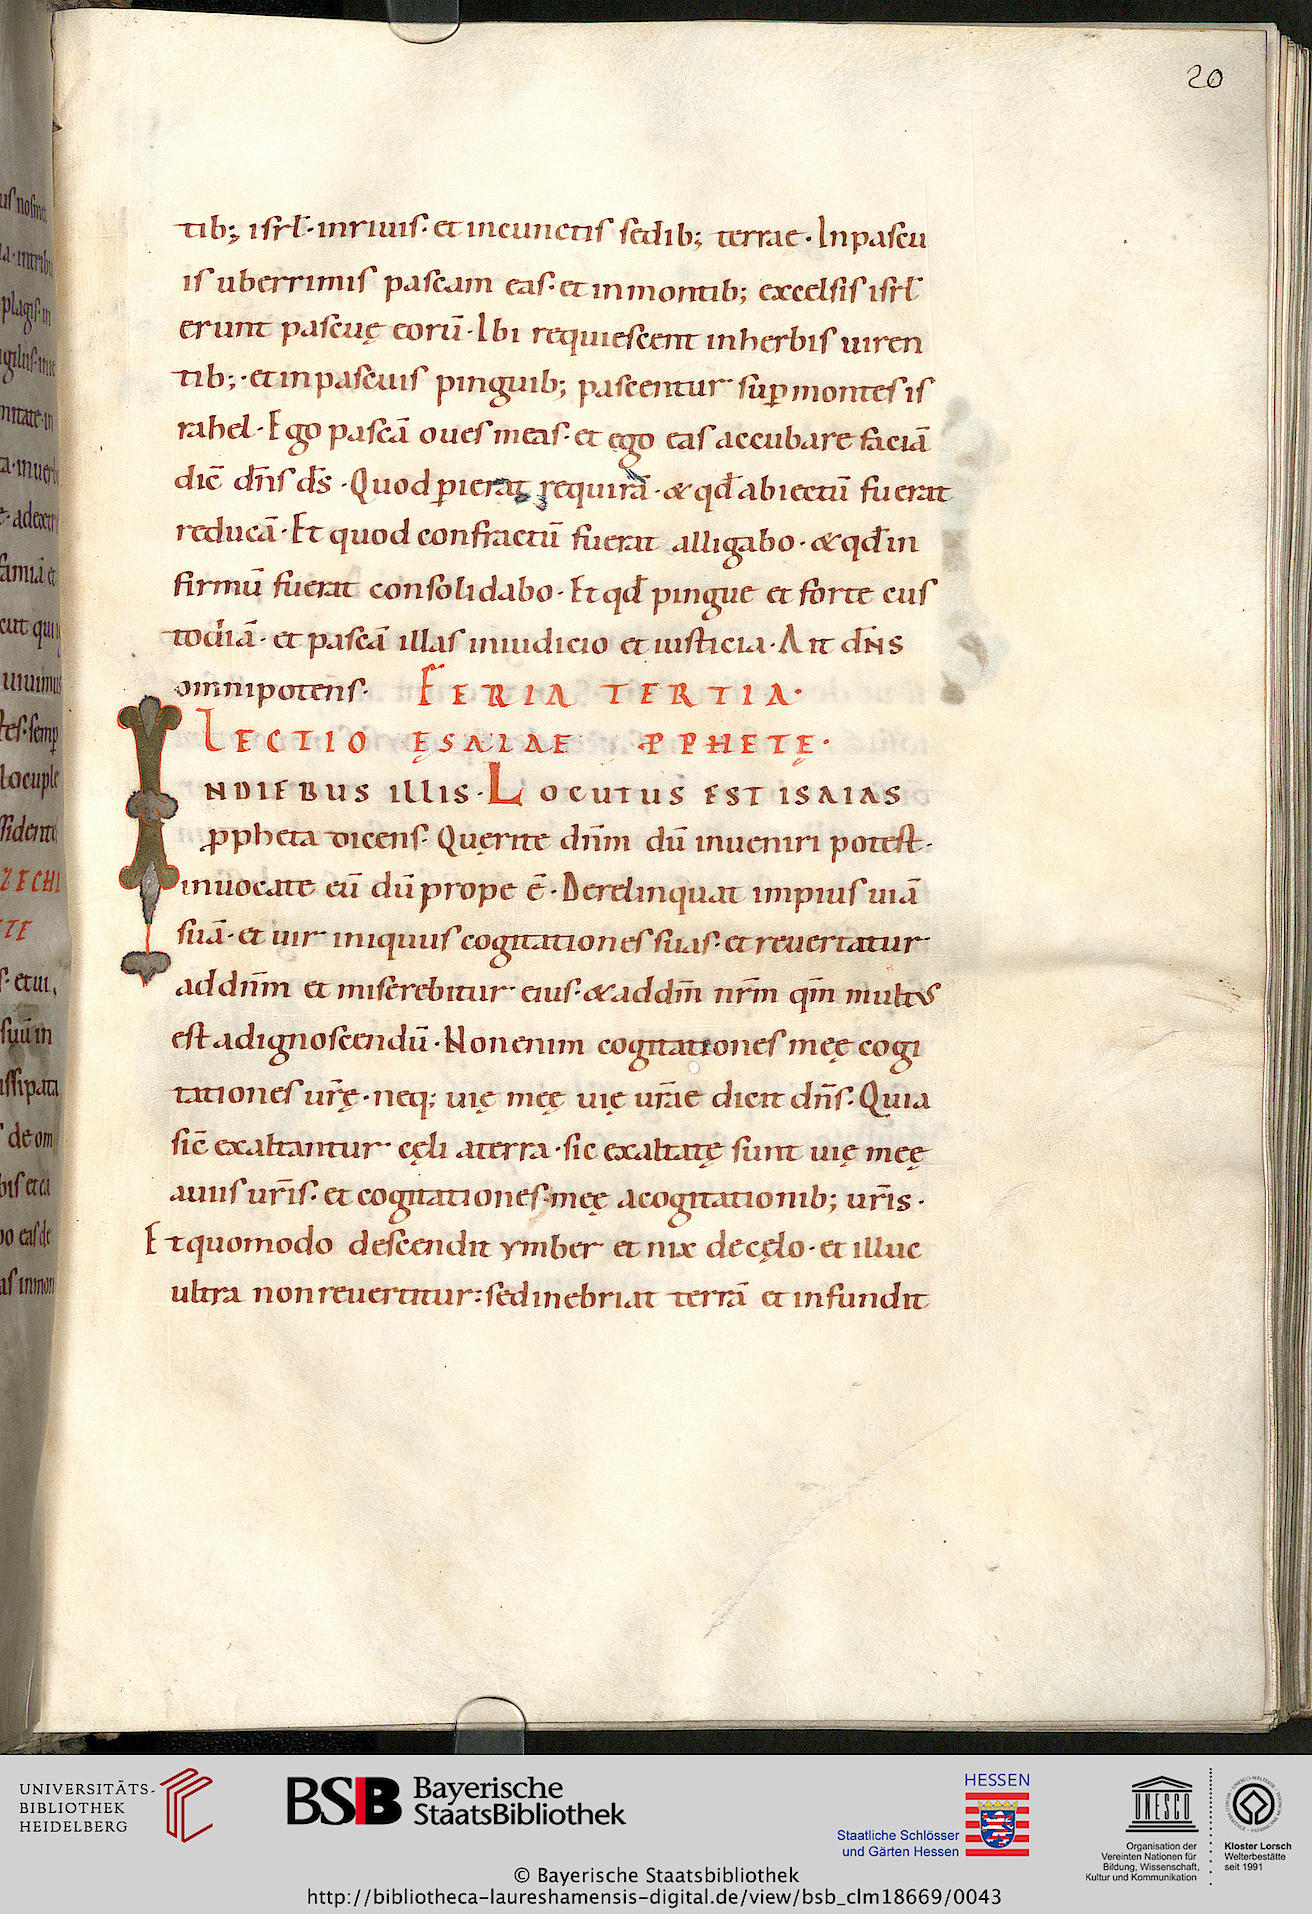 20
tib; isrl̄· in riuis· et in cunctis sedib; terrae· In pascu
is uberrimis pascam eas· et in montib; excelsis isrl̄
erunt pascuę eorū· Ibi requiescent in herbis uiren
tib;· et in pascuis pinguib; pascentur sup̄ montes is
rahel· Ego pascā oues meas· et ego eas accubare faciā
dic̄ dn̄s ds̄· Quod ꝑierat requirā· & qd̄ abiectū fuerat
reducā· Et quod confractū fuerat alligabo· & qd̄ in
firmū fuerat consolidabo· Et qd̄ pingue et forte cus
todiā· et pascā illas in iudicio et iusticia· Ait dn̄s
omnipotens· FERIA TERTIA·
LECTIO ĘSAIAE PPHETĘ·
INDIEBUS ILLIS· LOCUTUS EST ISAIAS
ꝓpheta dicens· Quęrite dn̄m dū inueniri potest·
inuocate eū dū prope ē· Derelinquat impius uiā
suā· et uir iniquus cogitationes suas· et reuertatur
ad dn̄m et miserebitur eius· & ad dm̄ nr̄m qm̄ multus
est ad ignoscendū· Non enim cogitationes meę cogi
tationes ur̄ę· neq; uię meę uię ur̄ae dicit dn̄s· Quia
sic̄ exaltantur cęli a terra· sic exaltatę sunt uię meę
a uiis ur̄is· et cogitationes meę a cogitationib; ur̄is·
Et quomodo descendit ymber et nix de cęlo· et illuc
ultra non reuertitur: sed inebriat terrā et infundit
UNIVERSITÄTS-
BIBLIOTHEK
HEIDELBERG
BSB Bayerische
StaatsBibliothek
HESSEN
Staatliche Schlösser
und Gärten Hessen
UNESCO
Organisation der
Vereinten Nationen für
Bildung, Wissenschaft,
Kultur und Kommunikation
Kloster Lorsch
Welterbestätte
seit 1991
© Bayerische Staatsbibliothek
http://bibliotheca-laureshamensis-digital.de/view/bsb_clm18669/0043